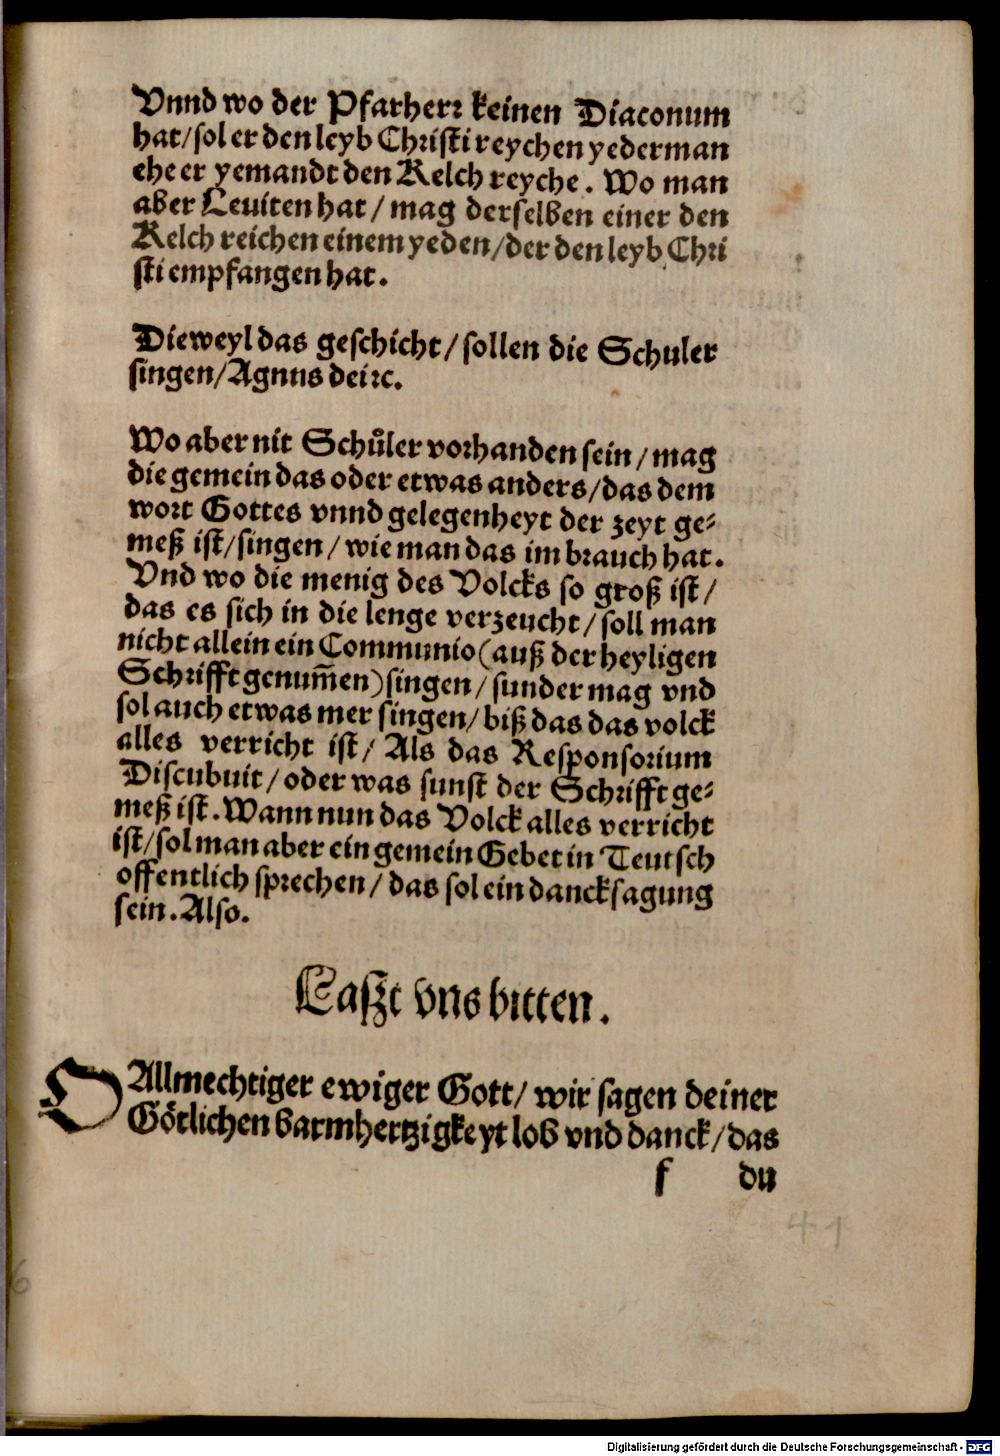 Vnnd wo der Pfarherr keinen Diaconum
hat/sol er den leyb Christi reychen yederman
ehe er yemandt den Kelch reyche. Wo man
aber Leuiten hat/mag derselben einer den
Kelch reichen einem yeden/der den leyb Chri
sti empfangen hat.
Dieweyl das geschicht/sollen die Schuler
singen/Agnus dei ⁊c.
Wo aber nit Schuͦler vorhanden sein/mag
die gemein das oder etwas anders/das dem
wort Gottes vnnd gelegenheyt der zeyt ge⸗
meß ist/singen/wie man das im brauch hat.
Vnd wo die menig des Volcks so groß ist/
das es sich in die lenge verzeucht/soll man
nicht allein ein Communio (auß der heyligen
Schrifft genum̃en) singen/sunder mag vnd
sol auch etwas mer singen/biß das das volck
alles verricht ist/Als das Responsorium
Discubuit/oder was sunst der Schrifft ge⸗
meß ist. Wann nun das Volck alles verricht
ist/sol man aber ein gemein Gebet in Teutsch
offentlich sprechen/das sol ein dancksagung
sein. Also.
Laszt vns bitten.
O Allmechtiger ewiger Gott/wir sagen deiner
Götlichen barmhertzigkeyt lob vnd danck/das
f du
41
6
Digitalisierung gefördert durch die Deutsche Forschungsgemeinschaft - DFG